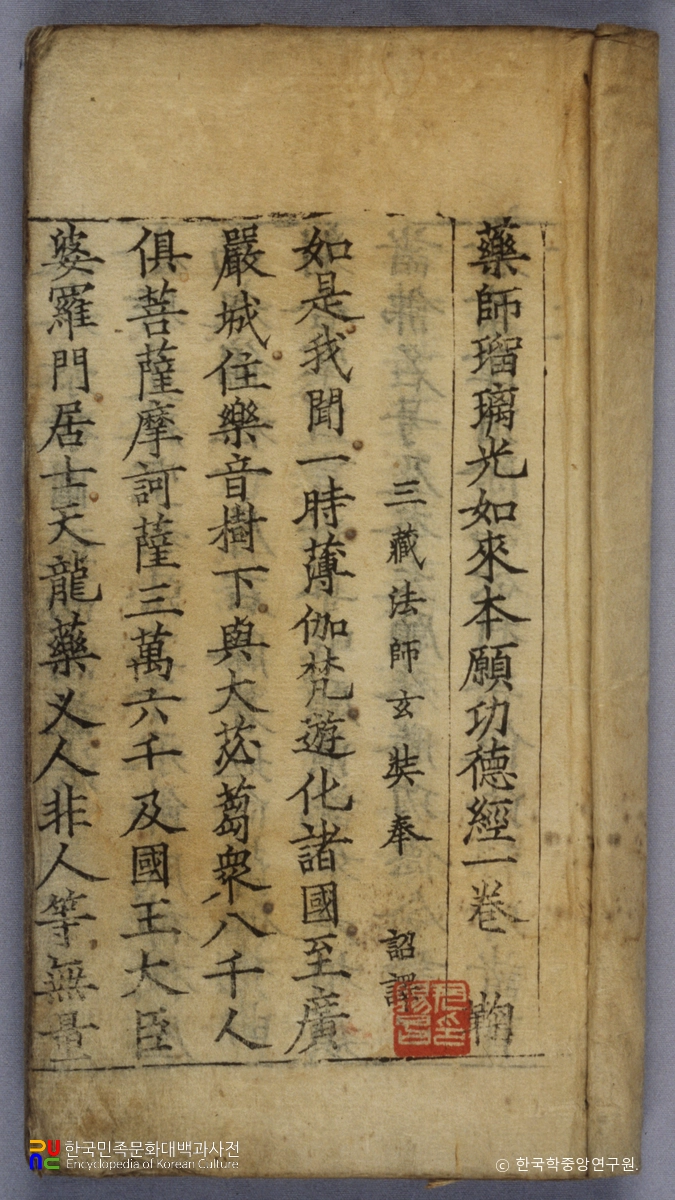 藥師瑠璃光如來本願功德經一卷 鞠
三藏法師玄奘奉 詔譯
如是我聞一時薄伽梵遊化諸國至廣
嚴城住樂音樹下與大苾蒭衆八千人
俱菩薩摩訶薩三萬六千及國王大臣
婆羅門居士天龍藥叉人非人等無量
한국민족문화대백과사전
Encyclopedia of Korean Culture
© 한국학중앙연구원